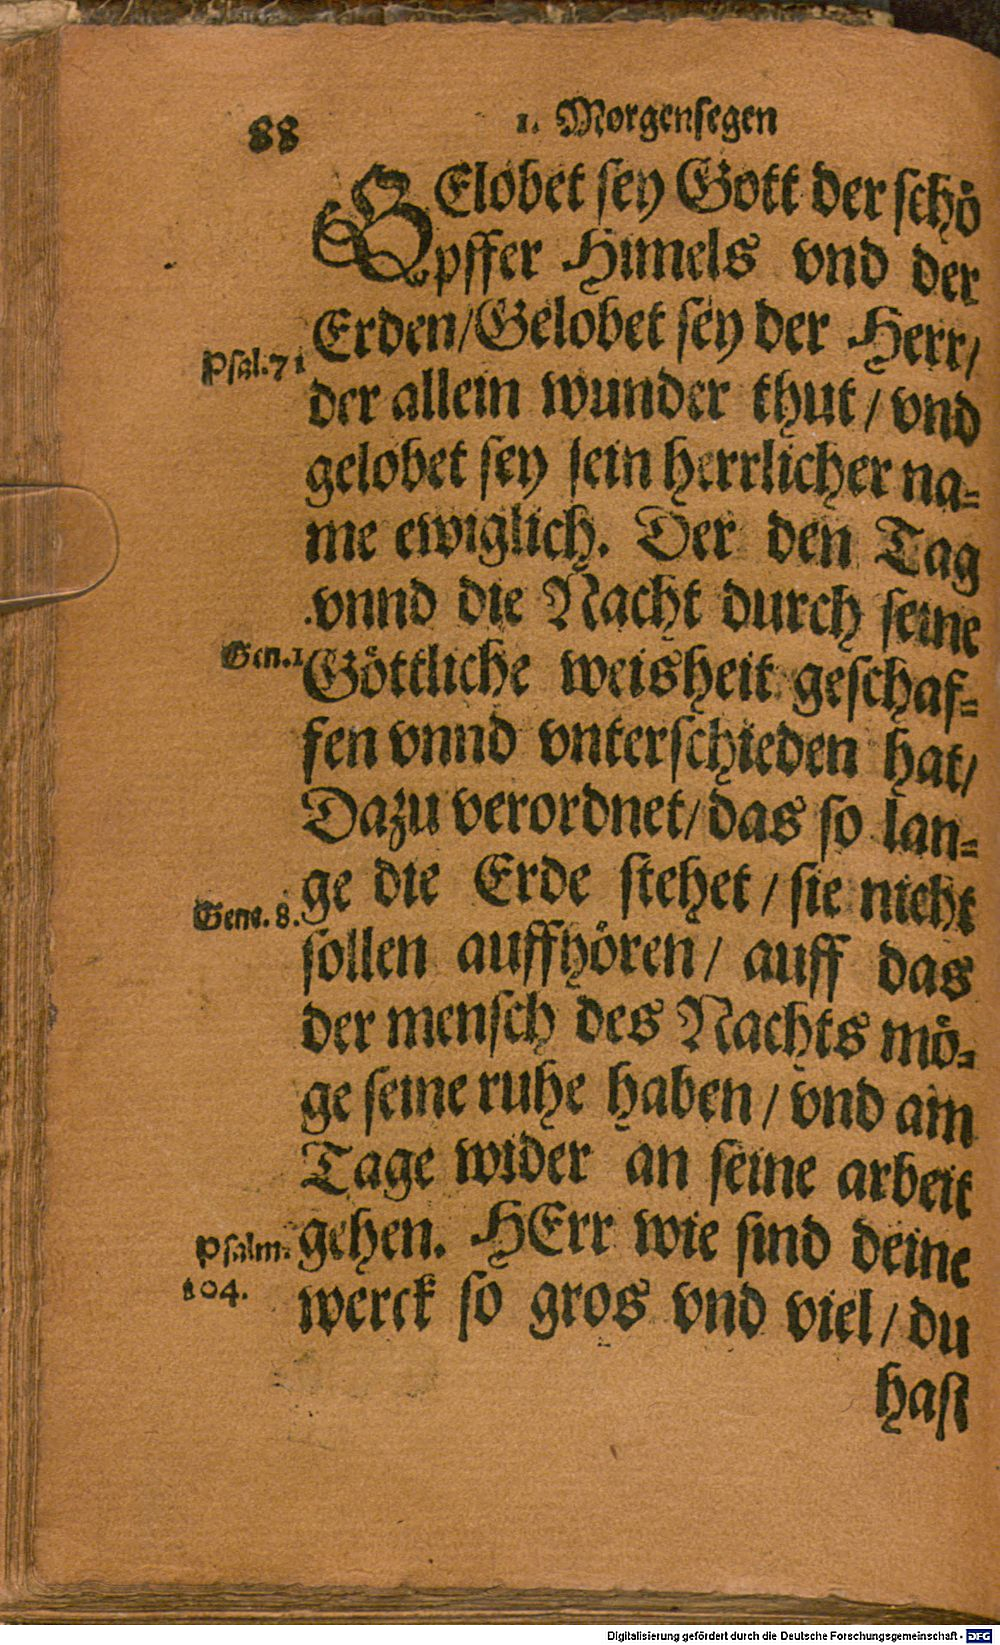 88
1. Morgensegen
GElobet sey Gott der schö
pffer Himels vnd der
Erden/Gelobet sey der Herr/
Psal.71
der allein wunder thut/vnd
gelobet sey sein herrlicher na-
me ewiglich. Der den Tag
vnnd die Nacht durch seine
Gen.1
Göttliche weisheit geschaf-
fen vnnd vnterschieden hat/
Dazu verordnet/das so lan-
ge die Erde stehet/sie nicht
Gene. 8.
sollen auffhören/auff das
der mensch des Nachts mö-
ge seine ruhe haben/vnd am
Tage wider an seine arbeit
gehen. HErr wie sind deine
Psalm.
104.
werck so gros vnd viel/du
hast
Digitalisierung gefördert durch die Deutsche Forschungsgemeinschaft - DFG